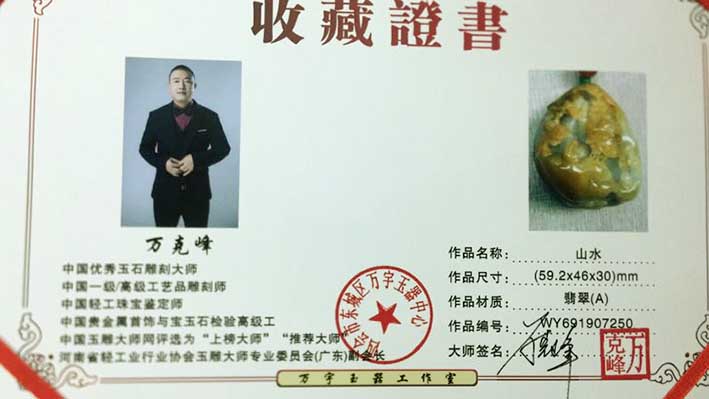 收藏證書
万克峰
中国优秀玉石雕刻大师
中国一级/高级工艺品雕刻师
中国轻工珠宝鉴定师
中国贵金属首饰与宝玉石检验高级工
中国玉雕大师网评选为“上榜大师”“推荐大师”
河南省轻工业行业协会玉雕大师专业委员会(广东)副会长
四会市东城区万字玉器中心
作品名称: 山水
作品尺寸: (59.2x46x30)mm
作品材质: 翡翠(A)
作品编号: WY691907250
大师签名: 万克峰
万克峰
万字玉器工作室